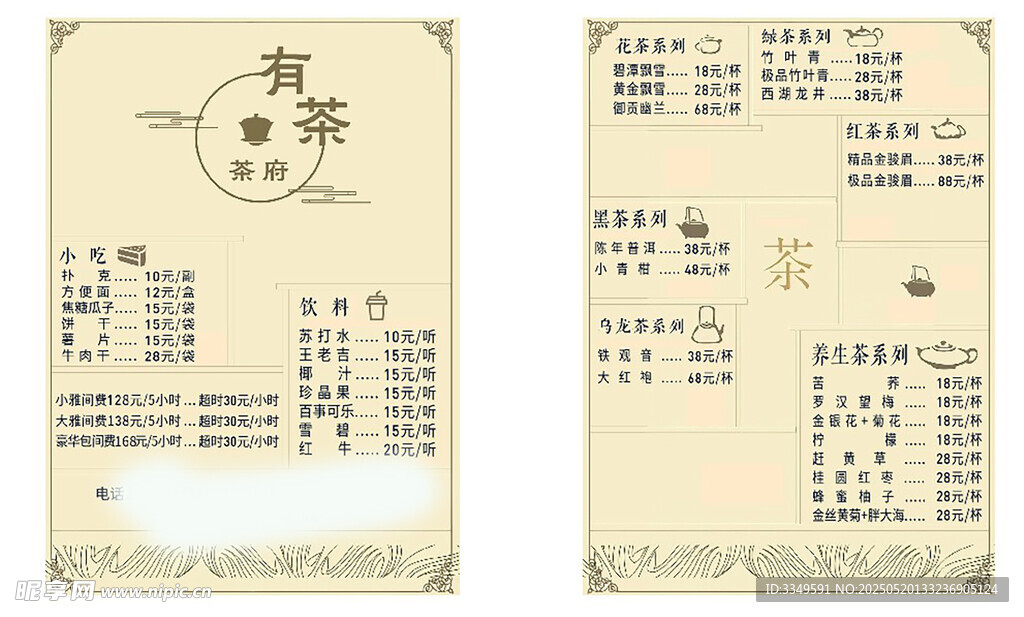 有
茶
茶府
小吃
扑克..... 10元/副
方便面..... 12元/盒
焦糖瓜子.... 15元/袋
饼干..... 15元/袋
薯片..... 15元/袋
牛肉干..... 28元/袋
饮料
苏打水.....10元/听
王老吉.....15元/听
椰汁.....15元/听
珍晶果.....15元/听
百事可乐.....15元/听
雪碧.....15元/听
红牛.....20元/听
小雅间费128元/5小时...超时30元/小时
大雅间费138元/5小时...超时30元/小时
豪华包间费168元/5小时...超时30元/小时
电话
花茶系列
碧潭飘雪..... 18元/杯
黄金飘雪..... 28元/杯
御贡幽兰..... 68元/杯
绿茶系列
竹叶青.....18元/杯
极品竹叶青.....28元/杯
西湖龙井.....38元/杯
红茶系列
精品金骏眉.....38元/杯
极品金骏眉.....88元/杯
黑茶系列
陈年普洱.....38元/杯
小青柑.....48元/杯
茶
乌龙茶系列
铁观音.....38元/杯
大红袍.....68元/杯
养生茶系列
苦荞..... 18元/杯
罗汉望梅..... 18元/杯
金银花+菊花..... 18元/杯
柠檬..... 18元/杯
赶黄草..... 28元/杯
桂圆红枣..... 28元/杯
蜂蜜柚子..... 28元/杯
金丝黄菊+胖大海..... 28元/杯
昵享网 www.nipic.cn
ID:3349591 NO:20250520133236905124